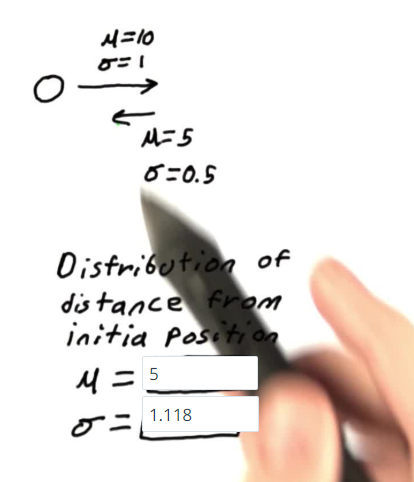 μ=10
σ=1
μ=5
σ=0.5
Distribution of
distance from
initia position
μ = 5
σ = 1.118